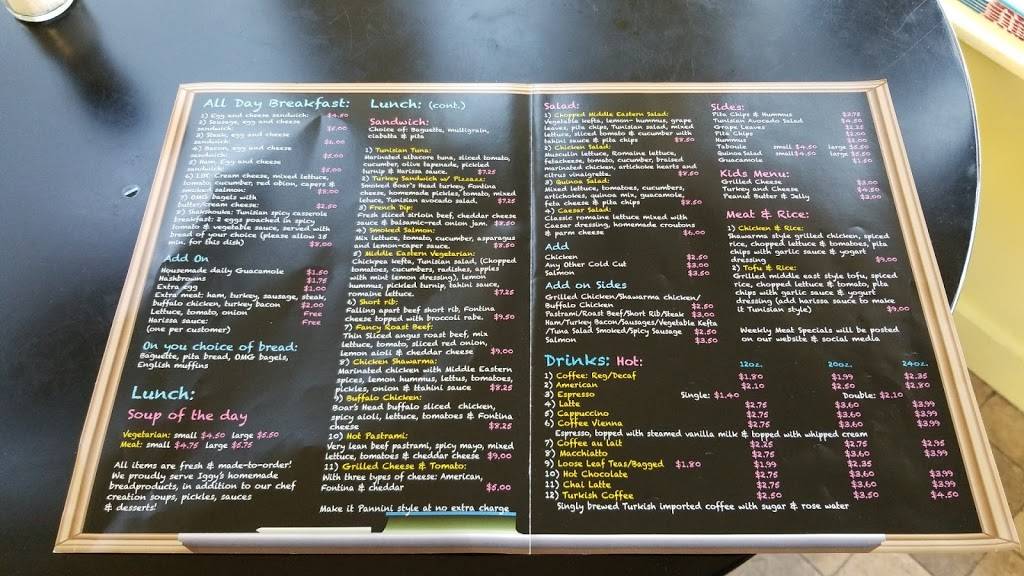 All Day Breakfast:
1) Egg and cheese sandwich: $4.50
2) Sausage, egg and cheese
sandwich: $5.00
3) Steak, egg and cheese
sandwich: $6.00
4) Bacon, egg and cheese
sandwich: $5.00
5) Ham, Egg and cheese
sandwich: $5.00
Cream cheese, mixed lettuce,
tomato, cucumber, red onion, capers &
smoked salmon: $8.00
7) OMG bagels with
butter/cream cheese: $2.50
8) Shakshouka: Tunisian spicy casserole
breakfast: 2 eggs poached in spicy
tomato & vegetable sauce, served with
bread of your choice (please allow 15
min. for this dish) $8.00
Add On
Housemade daily Guacamole $1.50
Hashbrowns $1.75
Extra egg $1.00
Extra meat: ham, turkey, sausage, steak,
buffalo chicken, turkey bacon $2.00
Lettuce, tomato, onion Free
Harissa sauce: Free
(one per customer)
On you choice of bread:
Baguette, pita bread, OMG bagels,
English muffins
Lunch:
Soup of the day
Vegetarian: small $4.50 large $5.50
Meat: small $4.75 large $5.75
All items are fresh & made-to-order!
We proudly serve Iggy's homemade
breadproducts, in addition to our chef
creation soups, pickles, sauces
& desserts!
Lunch: (cont.)
Sandwich:
Choice of: Baguette, multigrain,
ciabatta & pita
1) Tunisian Tuna:
Marinated albacore tuna, sliced tomato,
cucumber, olive tapenade, pickled
turnip & Harissa sauce. $7.25
2) Turkey Sandwich w/ Pizzazz:
Smoked Boar's Head turkey, Fontina
cheese, homemade pickles, tomato, mixed
letuce, Tunisian avocado salad. $7.25
3) French Dip:
Fresh sliced sirloin beef, cheddar cheese
sauce & balsamic-red onion jam. $8.50
4) Smoked Salmon:
Mix lettuce, tomato, cucumber, asparagus
and lemon-caper sauce. $8.50
5) Middle Eastern Vegetarian:
Chickpea kefta, Tunisian salad, (Chopped
tomatoes, cucumbers, radishes, apples
with mint lemon dressing), lemon
hummus, pickled turnip, tahini sauce,
romaine lettuce. $7.25
6) Short rib:
Falling apart beef short rib, Fontina
cheese topped with broccoli rabe. $9.50
7) Fancy Roast Beef:
Thin Sliced angus roast beef, mix
lettuce, tomato, sliced red onion,
lemon aioli & cheddar cheese $9.00
8) Chicken Shawarma:
Marinated chicken with Middle Eastern
spices, lemon hummus, lettus, tomatoes,
pickles, onion & tahini sauce $8.25
9) Buffalo Chicken:
Boar's Head buffalo sliced chicken,
spicy aioli, lettuce, tomatoes & Fontina
cheese $8.25
10) Hot Pastrami:
Very lean beef pastrami, spicy mayo, mixed
lettuce, tomatoes & cheddar cheese $9.00
11) Grilled Cheese & Tomato:
With three types of cheese: American,
Fontina & cheddar $5.00
Make it Pannini style at no extra charge
Salad:
1) Chopped Middle Eastern Salad:
Vegetable kefta, lemon- hummus, grape
leaves, pita chips, Tunisian salad, mixed
lettuce, sliced tomato & cucumber with
tahini sauce & pita chips $8.50
2) Chicken Salad:
Musculin lettuce, Romaine lettuce,
fetacheese, tomato, cucumber, braised
marinated chicken, artichoke hearts and
citrus vinaigrette. $8.50
3) Quinoa Salad:
Mixed lettuce, tomatoes, cucumbers,
artichokes, quinoa mix, guacamole,
feta cheese & pita chips $8.50
4) Caesar Salad:
Classic romaine lettuce mixed with
Caesar dressing, homemade croutons
& parm cheese $6.00
Add
Chicken $2.50
Any Other Cold Cut $3.00
Salmon $3.50
Add on Sides
Grilled Chicken/Shawarma chicken/
Buffalo Chicken $2.50
Pastrami/Roast Beef/Short Rib/Steak $3.00
Ham/Turkey Bacon/Sausages/Vegetable Kefta
/Tuna Salad Smoked/Spicy Sausage $2.50
Salmon $3.50
Sides:
Pita Chips & Hummus $2.75
Tunisian Avocado Salad $4.50
Grape Leaves $2.25
Pita Chips $1.00
Hummus $2.25
Taboule small $4.50 large $5.50
Quinoa Salad small $4.50 large $5.50
Guacamole $1.50
Kids Menu:
Grilled Cheese $3.00
Turkey and Cheese $4.50
Peanut Butter & Jelly $3.00
Meat & Rice:
1) Chicken & Rice:
Shawarma style grilled chicken, spiced
rice, chopped lettuce & tomatoes, pita
chips with garlic sauce & yogurt
dressing $9.00
2) Tofu & Rice:
Grilled middle east style tofu, spiced
rice, chopped lettuce & tomato, pita
chips with garlic sauce & yogurt
dressing (add harissa sauce to make
it Tunisian style) $9.00
Weekly Meat Specials will be posted
on our website & social media
Drinks: Hot: 12oz. 20oz. 24oz.
1) Coffee: Reg/Decaf $1.80 $1.99 $2.35
2) American $2.10 $2.50 $2.80
3) Espresso Single: $1.40 Double: $2.10
4) Latte $2.75 $3.60 $3.99
5) Cappuccino $2.75 $3.60 $3.99
6) Coffee Vienna $2.75 $3.60 $3.99
Espresso, topped with steamed vanilla milk & topped with whipped cream
7) Coffee au lait $2.25 $2.75 $2.95
8) Macchiatto $2.75 $3.60 $3.99
9) Loose Leaf Teas/Bagged $1.80 $1.99 $2.35
10) Hot Chocolate $2.75 $3.60 $3.99
11) Chai Latte $2.75 $3.60 $3.99
12) Turkish Coffee $2.50 $3.50 $4.50
Singly brewed Turkish imported coffee with sugar & rose water